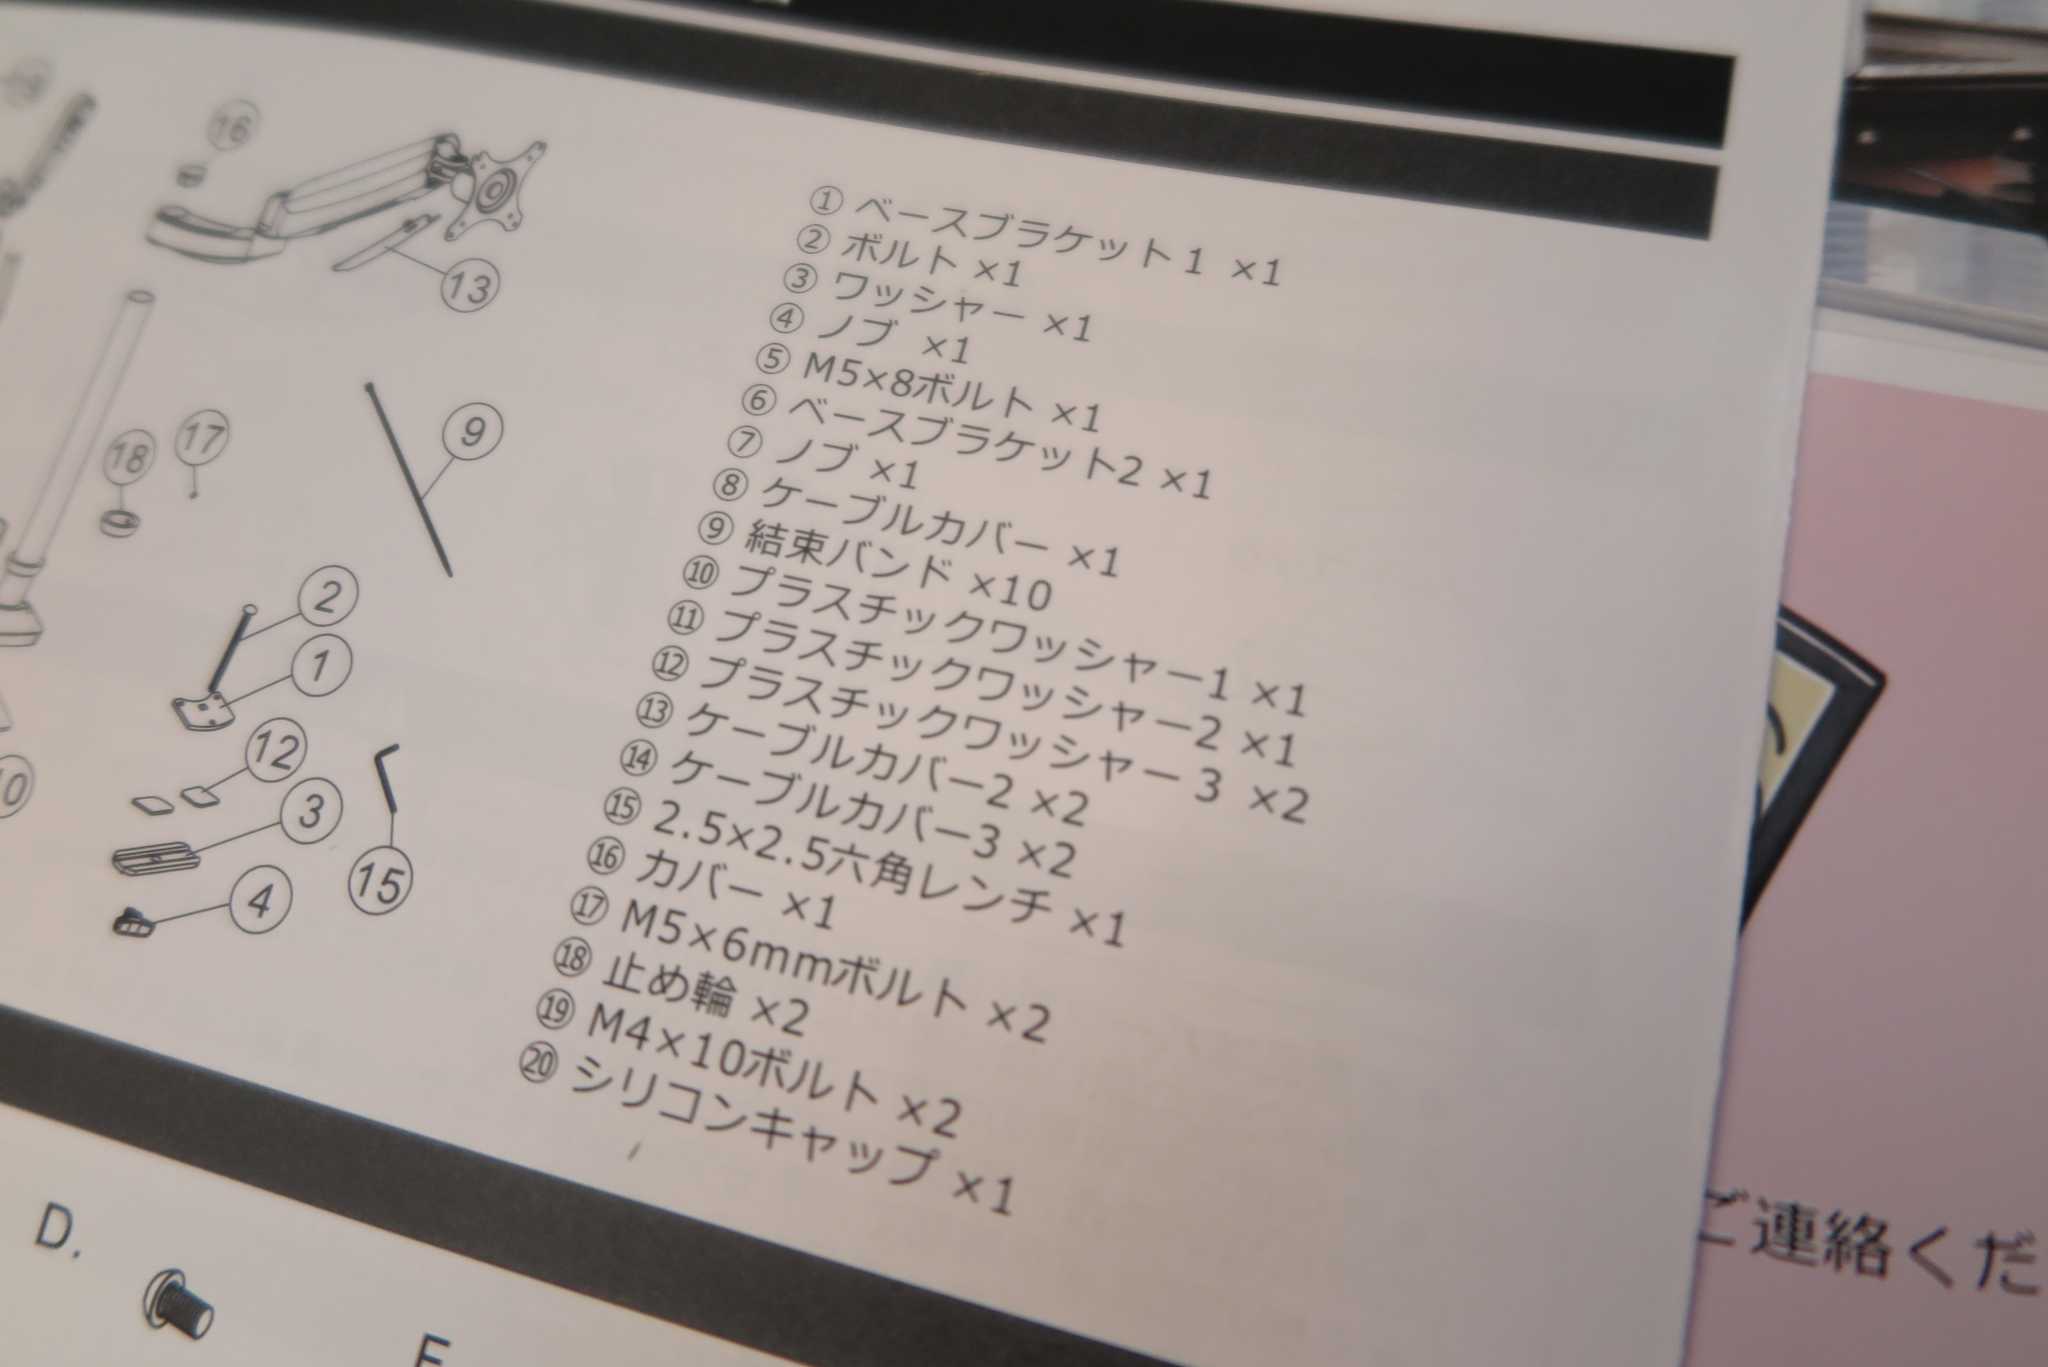 16
13
9
17
18
2
1
12
3
15
4
① ベースブラケット1 ×1
② ボルト ×1
③ ワッシャー ×1
④ ノブ ×1
⑤ M5×8ボルト ×1
⑥ ベースブラケット2 ×1
⑦ ノブ ×1
⑧ ケーブルカバー ×1
⑨ 結束バンド ×10
⑩ プラスチックワッシャー1 ×1
⑪ プラスチックワッシャー2 ×1
⑫ プラスチックワッシャー3 ×2
⑬ ケーブルカバー2 ×2
⑭ ケーブルカバー3 ×2
⑮ 2.5×2.5六角レンチ ×1
⑯ カバー ×1
⑰ M5×6mmボルト ×2
⑱ 止め輪 ×2
⑲ M4×10ボルト ×2
⑳ シリコンキャップ ×1
D.
ご連絡くだ